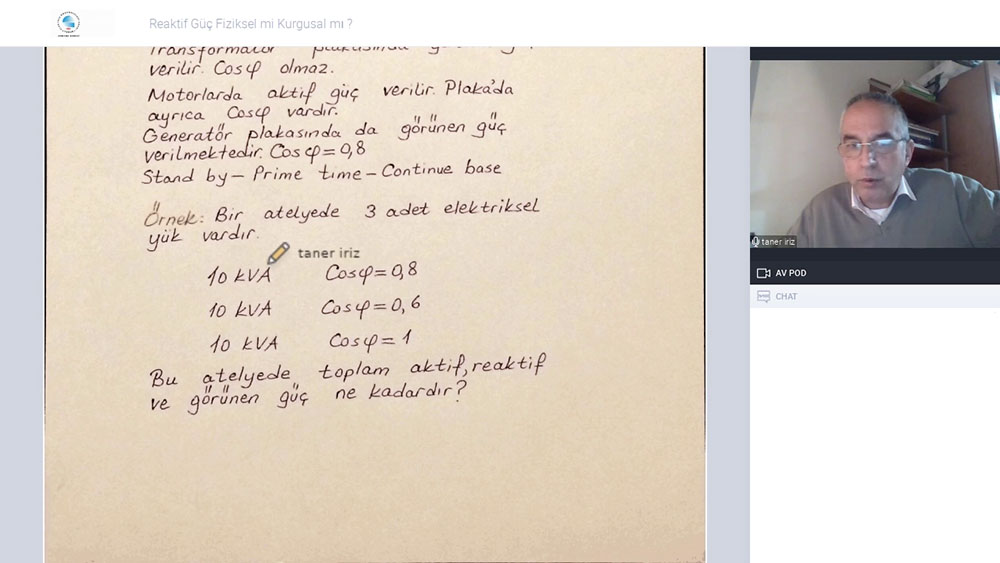 Reaktif Güç Fiziksel mi Kurgusal mı ?
Transformatör
verilir. Cosφ olmaz.
Motorlarda aktif güç verilir. Plaka'da
ayrıca Cosφ vardır.
Generatör plakasında da görünen güç
verilmektedir. Cosφ=0,8
Stand by - Prime tıme - Continue base
Örnek: Bir atelyede 3 adet elektriksel
yük vardır.
taner iriz
10 kVA Cosφ=0,8
10 kVA Cosφ=0,6
10 kVA Cosφ=1
Bu atelyede toplam aktif, reaktif
ve görünen güç ne kadardır?
taner iriz
AV POD
CHAT